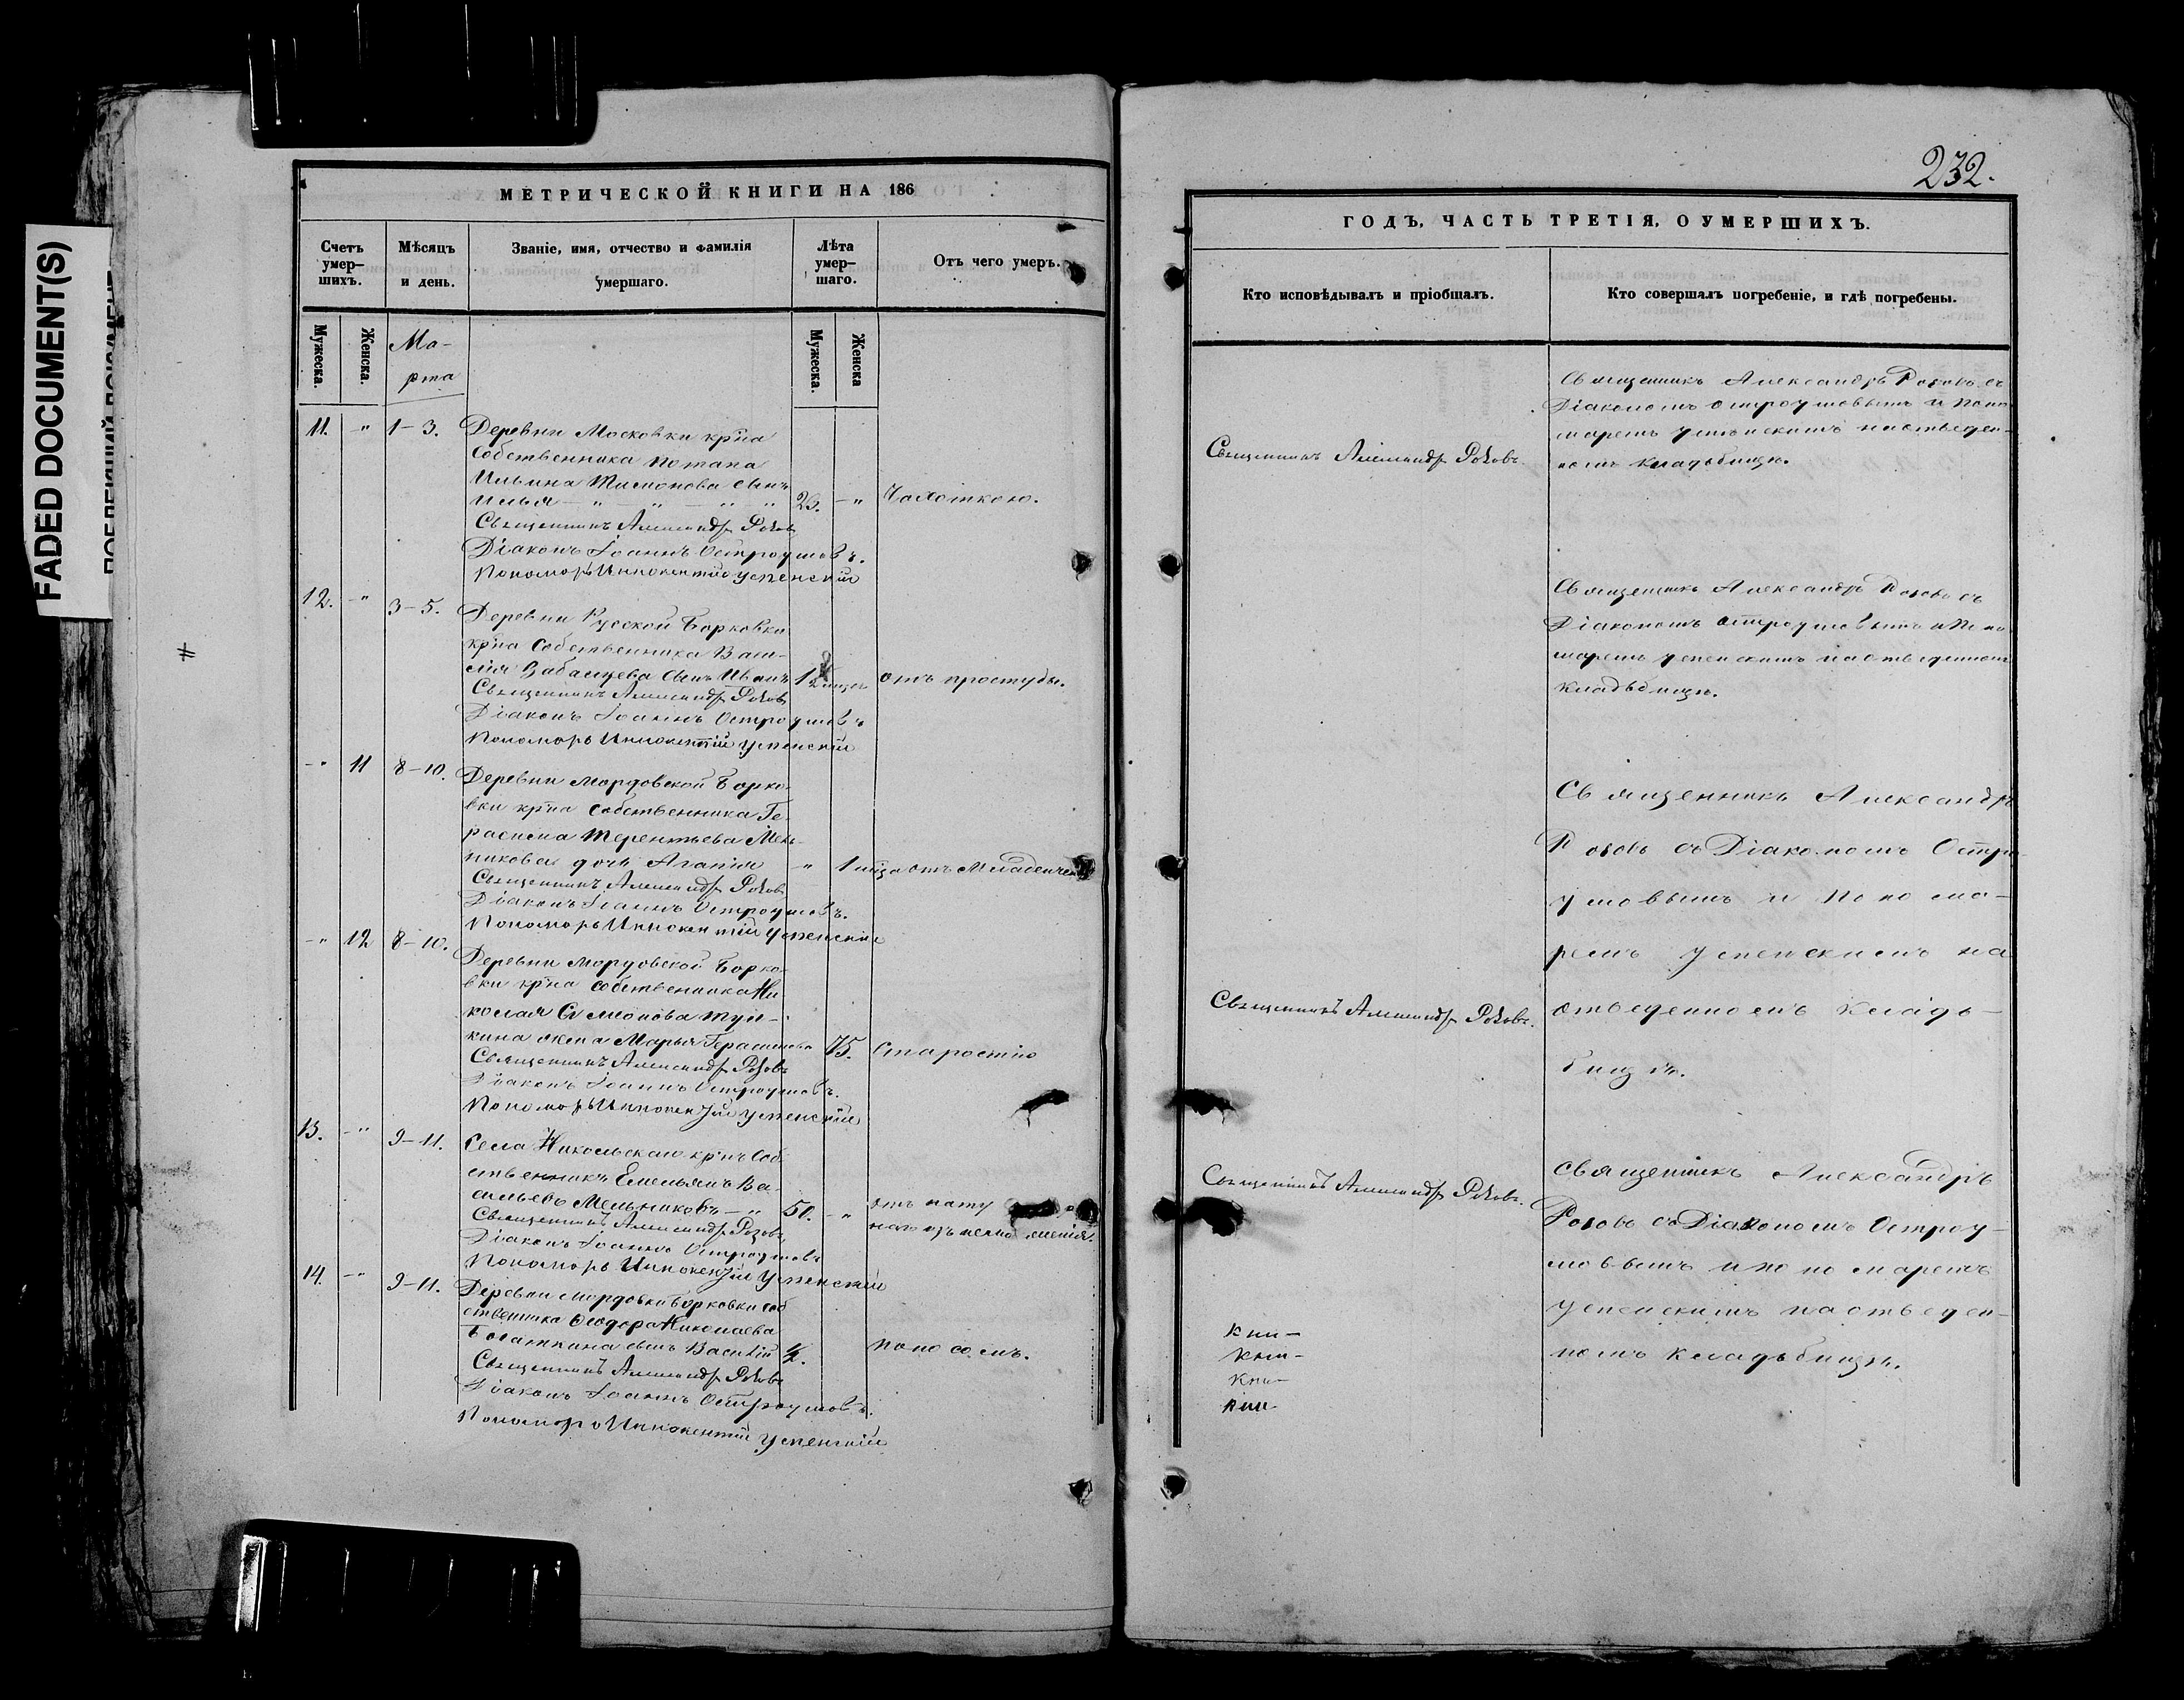 FADED DOCUMENT(S)
232.
МЕТРИЧЕСКОЙ КНИГИ НА 186
Счетъ умер-шихъ.
Мѣсяцъ и день.
Званіе, имя, отчество и фамилія умершаго.
Лѣта умер-шаго.
Отъ чего умеръ.
Мужеска.
Женска.
Мужеска.
Женска
Ма-
рта
11. - " 1-3. Деревни Московки кр̃на
Собственника Потапа
Ильина Тимонова сынъ
Илья - " - " - " " 26. - " Чахоткою.
Священникъ Александръ Розовъ
Діаконъ Іоаннъ Остроумовъ.
Пономарь Иннокентій Успенскій
12. - " 3-5. Деревни Русской Борковки
кр̃на Собственника Васи-
лія Забалуева сынъ Иванъ отъ простуды.
Священникъ Александръ Розовъ
Діаконъ Іоаннъ Остроумовъ
Пономарь Иннокентій Успенскій
- " 11 8-10. Деревни Мордовской Борко-
вки кр̃на Собственника Ге-
расима Терентьева Мель-
никова дочь Агапія - " 1 отъ Младенчес
Священникъ Александръ Розовъ
Діаконъ Іоаннъ Остроумовъ.
Пономарь Иннокентій Успенскій
- " 12 8-10. Деревни Мордовской Борко-
вки кр̃на Собственника Ни
колая Симонова
кина жена Марья Герасимова 75. Старостію
Священникъ Александръ Розовъ
Діаконъ Іоаннъ Остроумовъ.
Пономарь Иннокентій Успенскій
13. - " 9-11. Села Никольскаго кр̃нъ Соб-
ственникъ Емельянъ Ва-
сильевъ Мельниковъ - " 50. - " отъ нату
Священникъ Александръ Розовъ
Діаконъ Іоаннъ Остроумовъ
Пономарь Иннокентій Успенскій
14. - " 9-11. Деревни Мордовки Борковки соб
ственника Ѳеодора Николаева
Богаткина сынъ Василій ½. поносомъ.
Священникъ Александръ Розовъ
Діаконъ Іоаннъ Остроумовъ.
Пономарь Иннокентій Успенскій
ГОДЪ, ЧАСТЬ ТРЕТІЯ, О УМЕРШИХЪ.
Кто исповѣдывалъ и пріобщалъ.
Кто совершалъ погребеніе, и гдѣ погребены.
Священникъ Александръ Розовъ
Священникъ Александръ Розовъ съ
Діакономъ Остроумовымъ и Поно
маремъ Успенскимъ на отведен-
номъ кладьбищѣ.
Священникъ Александръ Розовъ съ
Діакономъ Остроумовымъ и Поно
маремъ Успенскимъ на отведенномъ
кладьбищѣ.
Священникъ Александръ Розовъ.
Священникъ Александръ
Розовъ съ Діакономъ Остро
умовымъ и Понома-
ремъ Успенскимъ на
отведенномъ кладь-
бищѣ.
Священникъ Александръ Розовъ.
Священникъ Александръ
Розовъ съ Діакономъ Остроу-
мовымъ и пономаремъ
Успенскимъ на отведен-
номъ кладьбищѣ.